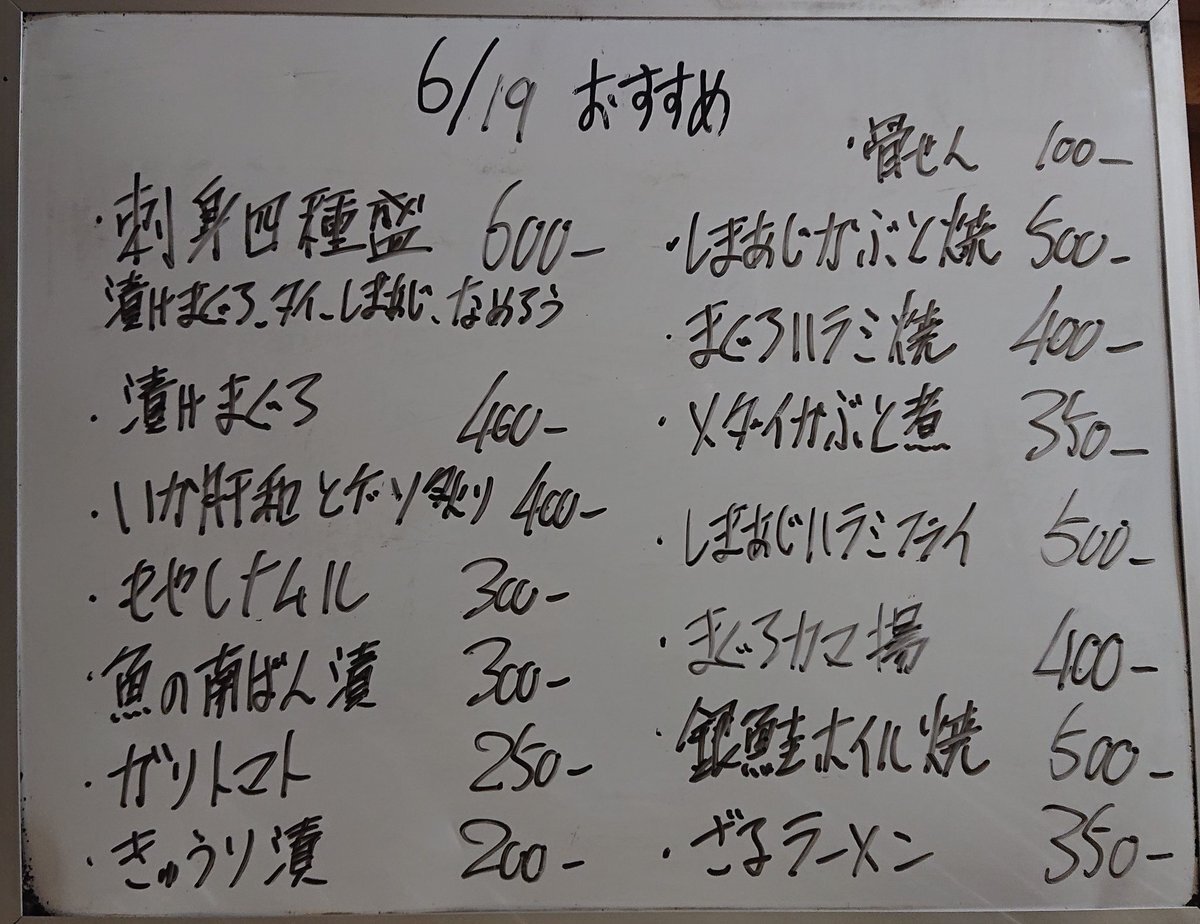 6/19 おすすめ
・刺身四種盛 600-
漬けまぐろ、タイ、しまあじ、なめろう
・漬けまぐろ 460-
・いか肝和とゲソ炙り 400-
・もやしナムル 300-
・魚の南ばん漬 300-
・ガリトマト 250-
・きゅうり漬 200-
・骨せん 100-
・しまあじかぶと焼 500-
・まぐろハラミ焼 400-
・メダイかぶと煮 350-
・しまあじハラミフライ 500-
・まぐろカマ揚 400-
・銀鮭ホイル焼 500-
・ざるラーメン 350-